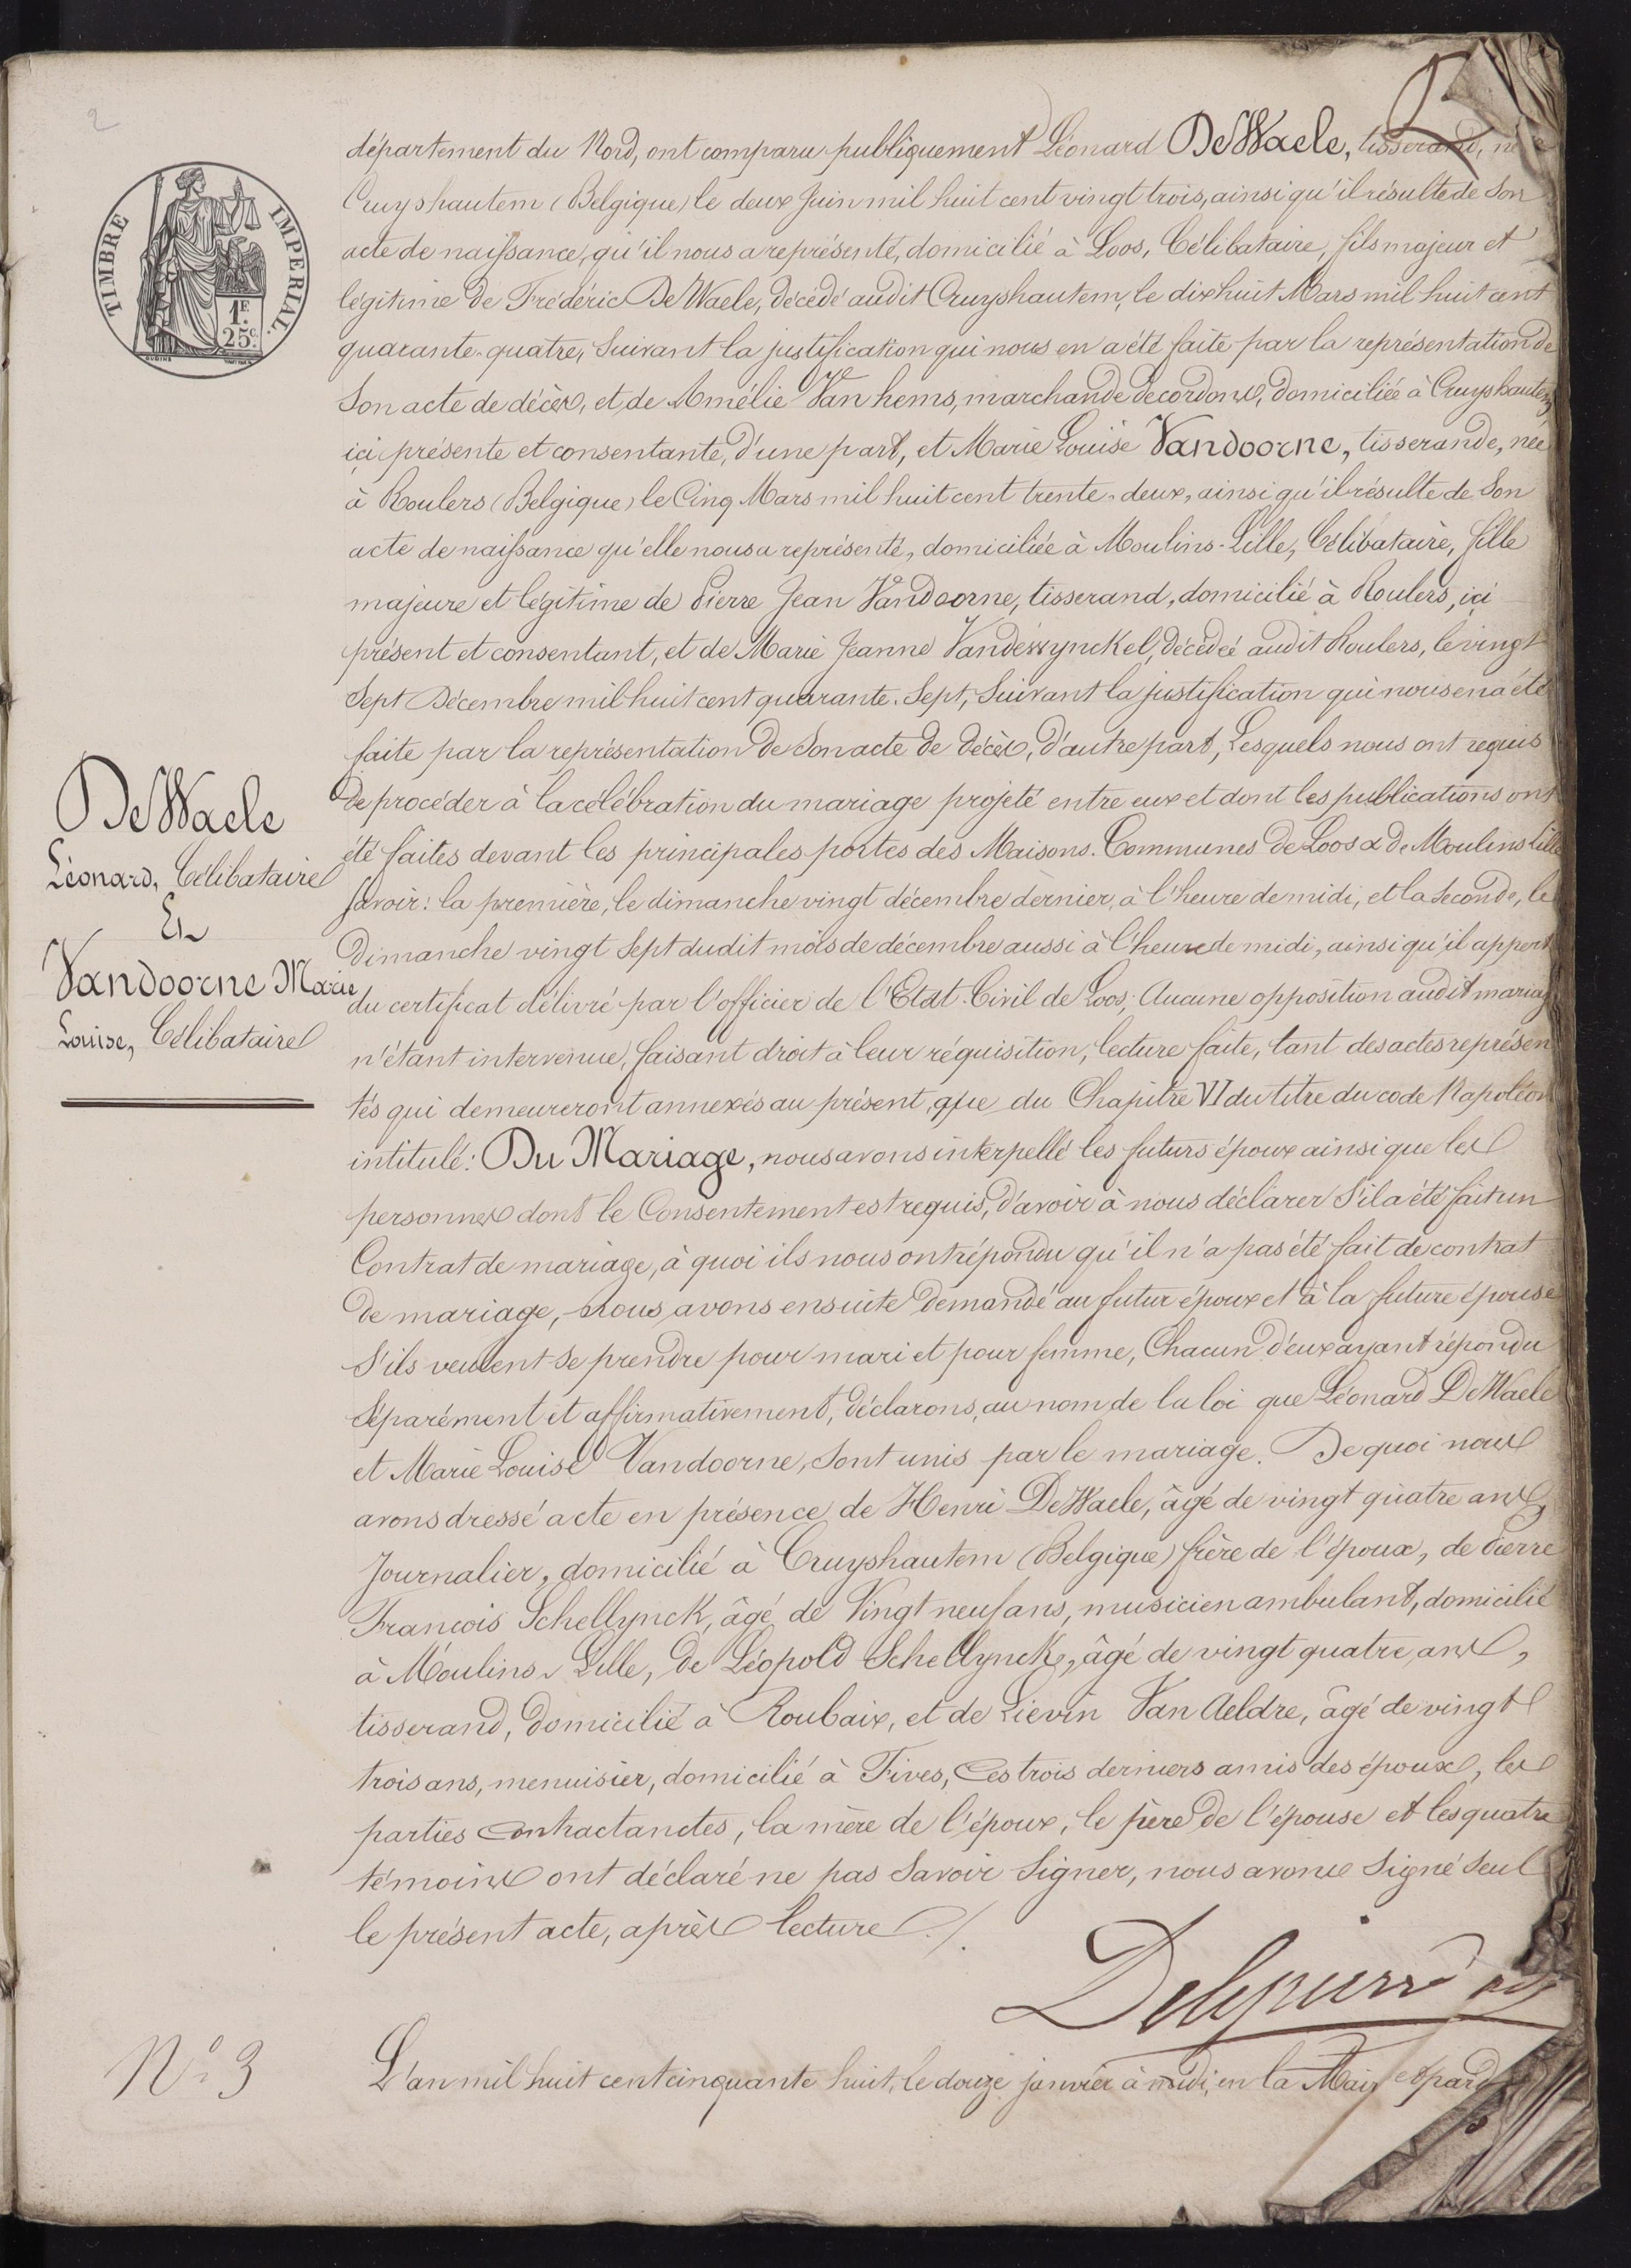 2
TIMBRE IMPERIAL.
1F.
25c.
département du Nord, ont comparu publiquement Léonard DeWaele, tisserand, né
Cruyshautem (Belgique) le deux Juin mil huit cent vingt trois, ainsi qu'il résulte de Son
acte de naissance, qu'il nous a représenté, domicilié à Loos, Célibataire, fils majeur et
légitime de Frédéric DeWaele, décédé audit Cruyshautem, le dix huit Mars mil huit cent
quarante-quatre, Suivant la justification qui nous en a été faite par la représentation de
Son acte de décès, et de Amélie Van hems, marchande de cordons, domiciliée à Cruyshautem
ici présente et consentante, d'une part, et Marie Louise Vandoorne, tisserande, née
à Roulers (Belgique) le Cinq Mars mil huit cent trente-deux, ainsi qu'il résulte de Son
acte de naissance qu'elle nous a représenté, domiciliée à Moulins-Lille, Célibataire, fille
majeure et légitime de Pierre Jean Vandoorne, tisserand, domicilié à Roulers, ici
présent et consentant, et de Marie Jeanne Vandewynckel, décédée audit Roulers, le vingt
Sept Décembre mil huit cent quarante-Sept, Suivant la justification qui nous en a été
faite par la représentation de Son acte de décès, d'autre part, Lesquels nous ont requis
De procéder à la célébration du mariage projeté entre eux et dont les publications ont
été faites devant les principales portes des Maisons-Communes de Loos & de Moulins Lille
Savoir: la première, le dimanche vingt décembre dernier, à l'heure de midi, et la Seconde, le
Dimanche vingt Sept dudit mois de décembre aussi à l'heure de midi, ainsi qu'il appert
du certificat délivré par l'officier de l'Etat-Civil de Loos; Aucune opposition audit mariage
n'étant intervenue, faisant droit à leur réquisition, lecture faite, tant des actes représen
tés qui demeureront annexés au présent, que du Chapitre VI du titre du code Napoléon
intitulé: Du Mariage, nous avons interpellé les futurs époux ainsi que les
personnes dont le Consentement est requis, d'avoir à nous déclarer S'il a été fait un
Contrat de mariage, à quoi ils nous ont répondu qu'il n'a pas été fait de contrat
De mariage, nous avons ensuite demandé au futur époux et à la future épouse
S'ils veulent se prendre pour mari et pour femme, Chacun d'eux ayant répondu
Séparément et affirmativement, déclarons, au nom de la loi que Léonard DeWaele
et Marie Louise Vandoorne, Sont unis par le mariage. De quoi nous
avons dressé acte en présence de Henri DeWaele, âgé de vingt quatre ans,
Journalier, domicilié à Cruyshautem (Belgique) frère de l'époux, de Pierre
François Schellynck, âgé de Vingt neuf ans, musicien ambulant, domicilié
à Moulins-Lille, De Léopold Schellynck, âgé de vingt quatre ans,
tisserand, Domicilié à Roubaix, et de Liévin Van Aeldre, âgé de vingt
trois ans, menuisier, domicilié à Fives, Ces trois derniers amis des époux, les
parties contractanctes, la mère de l'époux, le père de l'épouse et les quatre
témoins ont déclaré ne pas Savoir Signer, nous avons Signé Seul
le présent acte, après lecture ./.
DeWaele
Léonard, Célibataire
Et
Vandoorne Marie
Louise, Célibataire
Delepierre
N° 3
L'an mil huit cent cinquante huit, le douze janvier à midi, en la Mais et par d